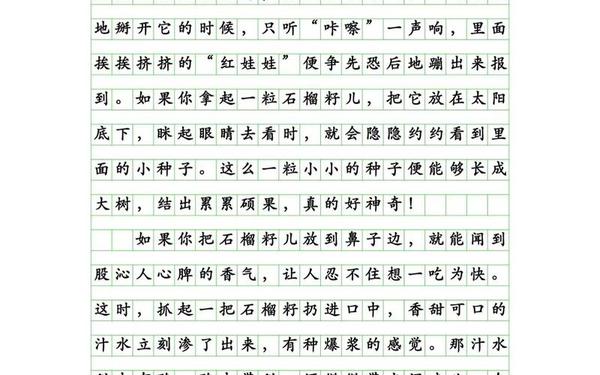 地掰开它的时候，只听“咔嚓”一声响，里面
挨挨挤挤的“红娃娃”便争先恐后地蹦出来报
到。如果你拿起一粒石榴籽儿，把它放在太阳
底下，眯起眼睛去看时，就会隐隐约约看到里
面的小种子。这么一粒小小的种子便能够长成
大树，结出累累硕果，真的好神奇！
如果你把石榴籽儿放到鼻子边，就能闻到
股沁人心脾的香气，让人忍不住想一吃为快。
这时，抓起一把石榴籽扔进口中，香甜可口的
汁水立刻渗了出来，有种爆浆的感觉。那汁水